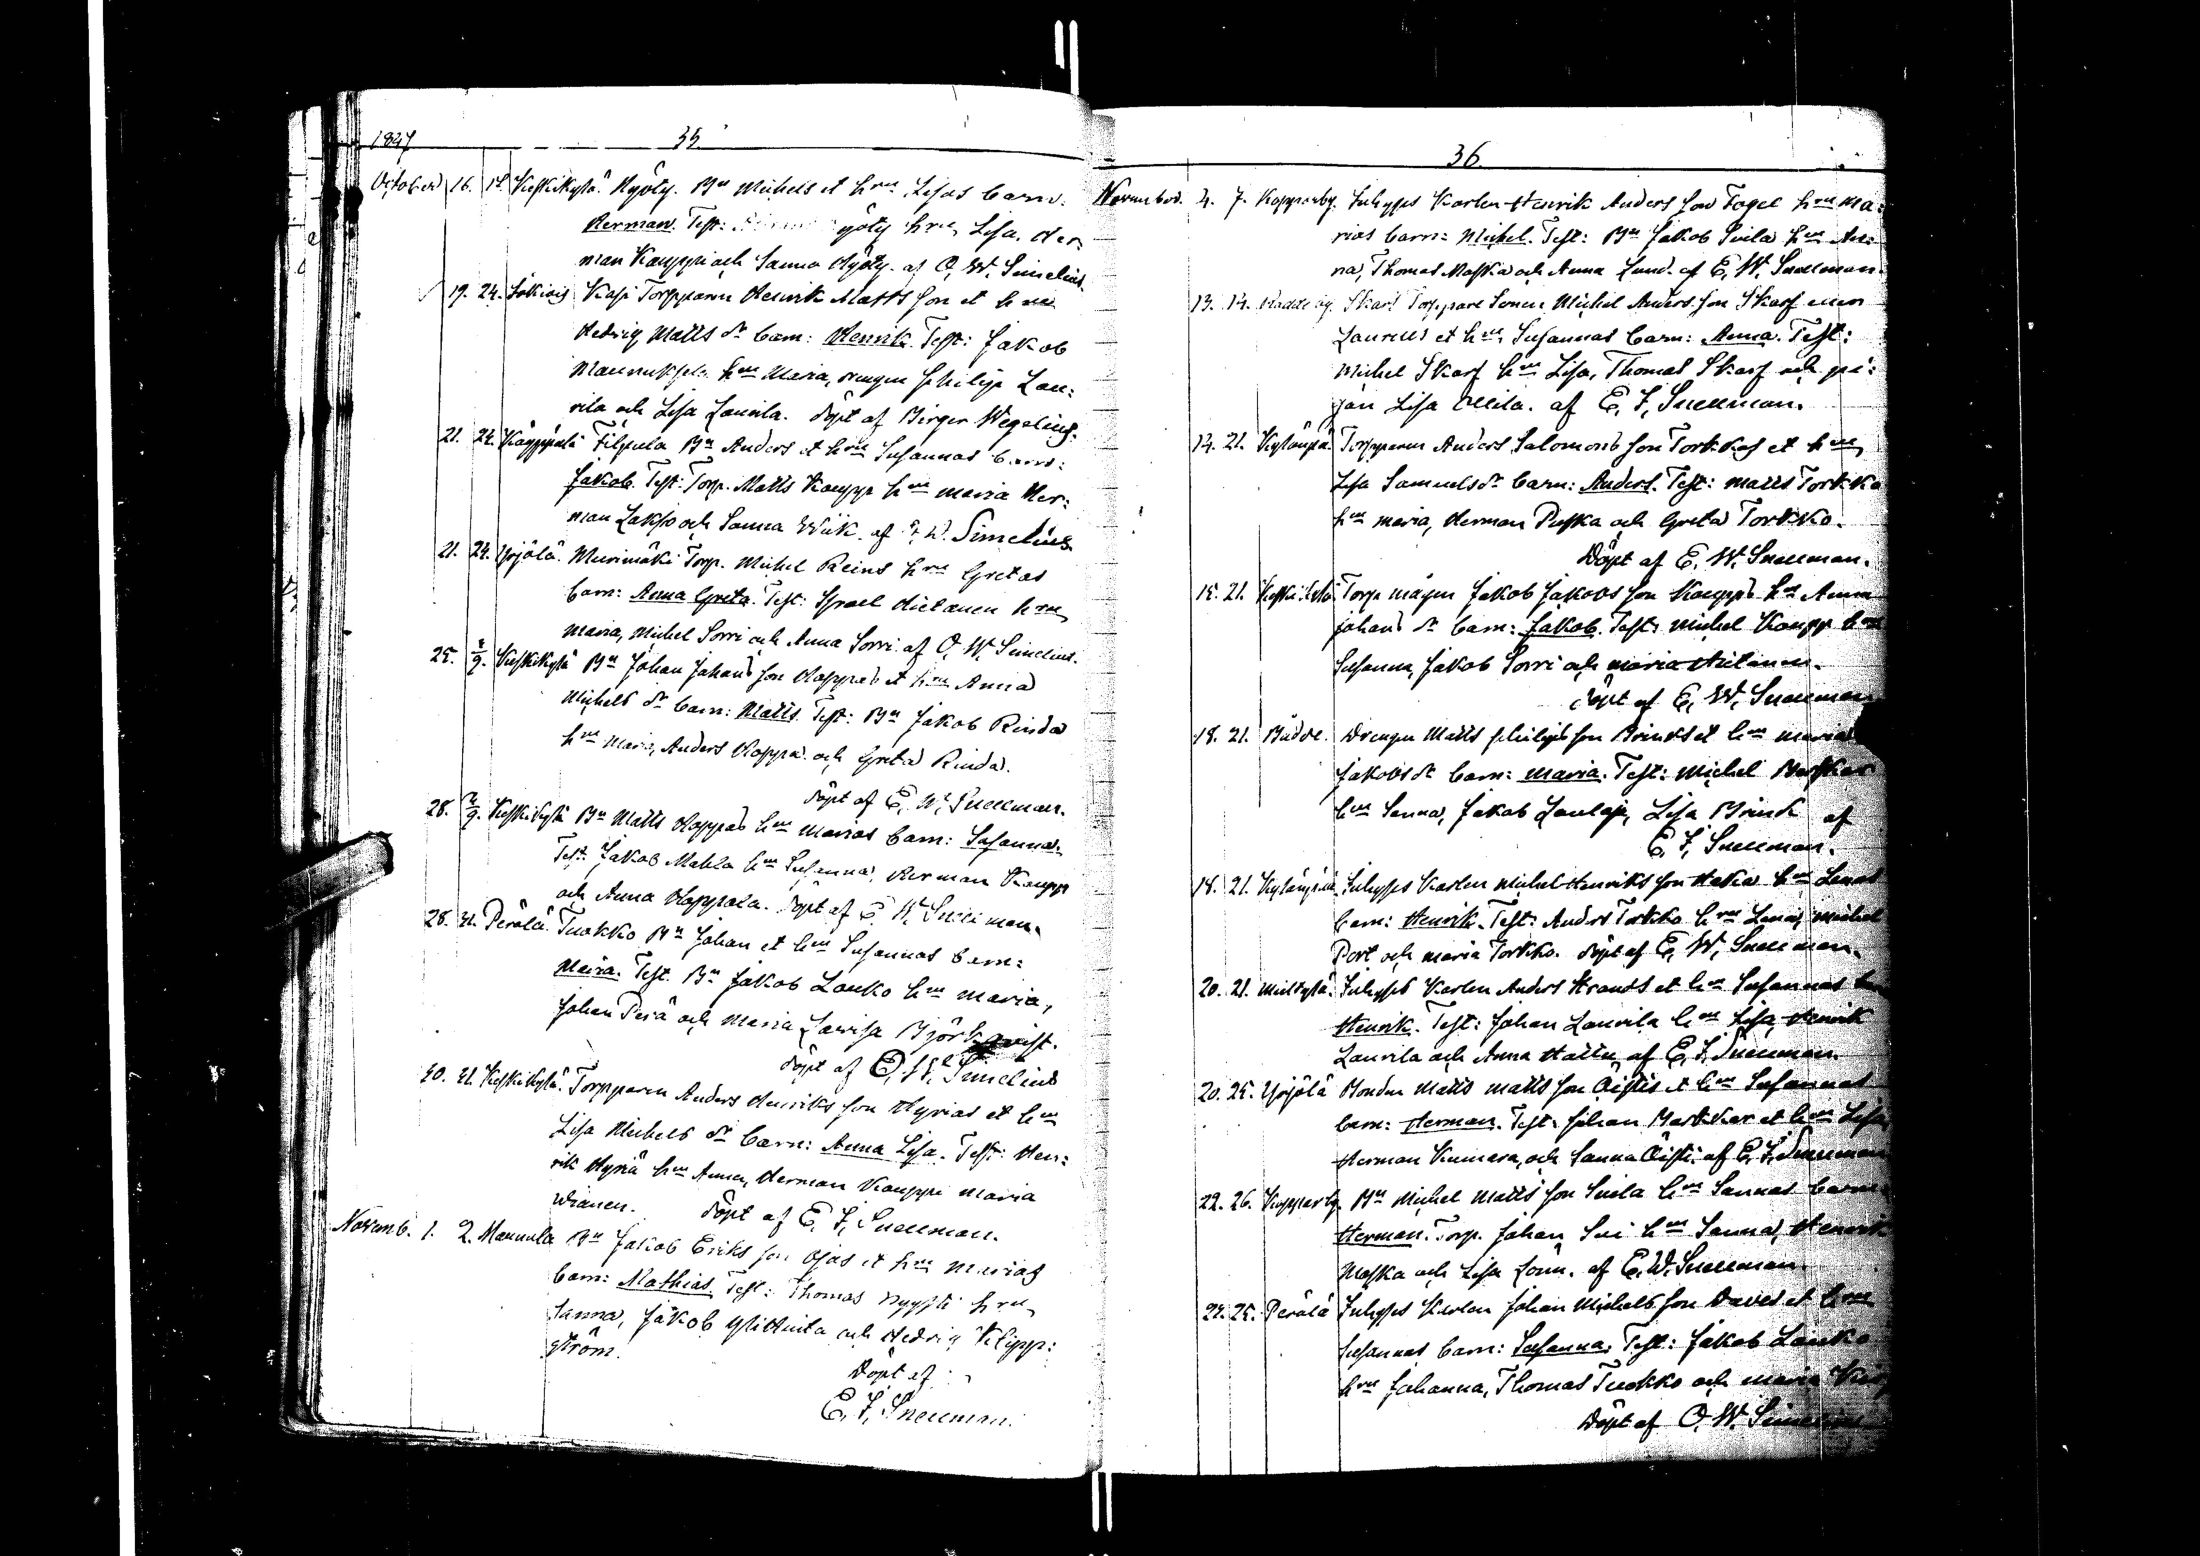 1847
35.
October 16. 17. Keskikylä. Nyöty. Bn Michels et hru Lisas barn:
Herman. Test: yöty hru, Lisa, Her-
man Kauppi och Sanna Nyöty. af O. W. Simelius.
19. 24. Kasi Torpparen Henrik Matts son et hru
Hedvig Matts dr barn: Henrik. Test: Jakob
hru Maria, drengen Philip Lau:
rila och Lisa Laurila. döpt af Birger Wegelius.
21. 24. Käyppälä Filpula Bn Anders et hru Susannas barn:
Jakob. Test: Torp. Matts Kaupp hru Maria Her:
man Lakso och Sanna Wiik. af Simelius
21. 24. Yrjälä. Murimäki Torp. Michel Reins hru Gretas
barn: Anna Greta. Test: Israel Hietanen hru,
Maria, Michel Sorri och Anna Sorri. af O. W. Simelius.
25. 9. Keskikylä Bn Johan Johans son Koppas et hru Anna
Michels dr barn: Matts. Test: Bn Jakob Rinda
hru Maria, Anders Koppa och Greta Rinda.
döpt af E. W. Snellman.
28. 9. Keskikylä Bn Matts Koppas hru Marias barn: Susanna.
Test: Jakob Mahla hru Susanna, Herman Kaupp
och Anna Koppala. döpt af E. W. Snellman.
28. 31. Perälä. Tuokko Bn Johan et hru Susannas barn:
Maria. Test. Bn Jakob Lauko hru Maria,
Johan Perä och Maria Lovisa Björkqvist.
döpt af O. W. Simelius
30. 31. Keskikylä. Torpparen Anders Henriks son Hyrias et hru
Lisa Michels dr barn: Anna Lisa. Test: Hen:
rik Hyriä hru Anna, Herman Kauppi Maria
döpt af E. F. Snellman.
Novemb. 1. 2. Mannula Bn Jakob Eriks son Ojas et hru Marias
barn: Mathias. Test: Thomas Nygsti hru,
Sanna, Jakob Ylihuita och Hedvig Klipp:
ström.
Döpt af
E. F. Snellman.
36.
November. 4. 7. Kopparby. Inhyses Karlen Henrik Anders son Fogel hru Ma:
rias barn: Michel. Test: Bn Jakob Suila hru An:
na, Thomas Maska och Anna Lund. af E. W. Snellman.
13. 14. Skarf Torppare Sonen Michel Anders son Skarf eller
Laurell et hru, Susannas barn: Anna. Test:
Michel Skarf hru Lisa, Thomas Skarf och pi:
gan Lisa Ollila. af E. F. Snellman.
14. 21. Kylänpää Torpparen Anders Salomons son Torkkos et hru,
Lisa Samuels dr barn: Anders. Test: Matts Torkko
hru Maria, Herman Puska och Greta Torkko.
Döpt af E. W. Snellman.
15. 21. Keskikylä. Torp mågen Jakob Jakobs son Kaupps hru Anna
Johans dr barn: Jakob. Test: Michel Kaupp hru
Susanna, Jakob Sorri och Maria Hietanen.
döpt af E. W. Snellman
18. 21. Drengen Matts Philips son Brinks et hru Maria
Jakobs dr barn: Maria. Test: Michel
hru Sanna, Jakob Lisa Brink af
E. F. Snellman.
18. 21. Kylänpää. Inhyses Karlen Michel Henriks son Haka hru Lenas
barn: Henrik. Test: Anders Torkko hru Lena, Michel
Port och Maria Torkko. döpt af E. W. Snellman.
20. 21. Mieltylä. Inhyses Karlen Anders et hru Susannas
Henrik. Test: Johan Laurila hru Lisa, Henrik
Laurila och Anna af E. F. Snellman.
20. 25. Yrjälä Bonden Matts Matts son Äistis et hru Susannas
barn: Herman. Test: Johan et hru Lisa
Herman och Sanna Äisti. af E. F. Snellman
22. 26. Kopparby. Bn Michel Matts son Suila hru Sannas barn
Herman. Torp. Johan Sui hru Sanna, Henrik
Maska och Lisa Lönn. af E. W. Snellman.
24. 25. Perälä Inhyses Karlen Johan Michels son et hru
Susannas barn: Susanna. Test: Jakob Lauko
hru Johanna, Thomas Tuokko och Maria
Döpt af O. W. Simelius